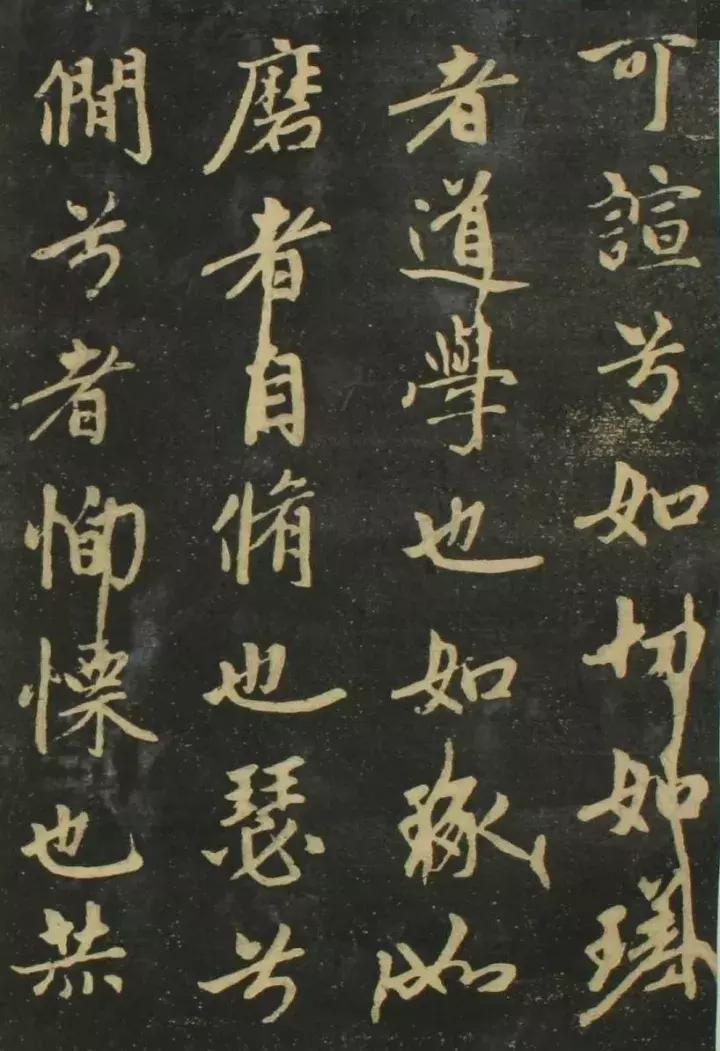 可諠兮如切如瑳
者道學也如琢如
磨者自脩也瑟兮
僩兮者恂慄也赫